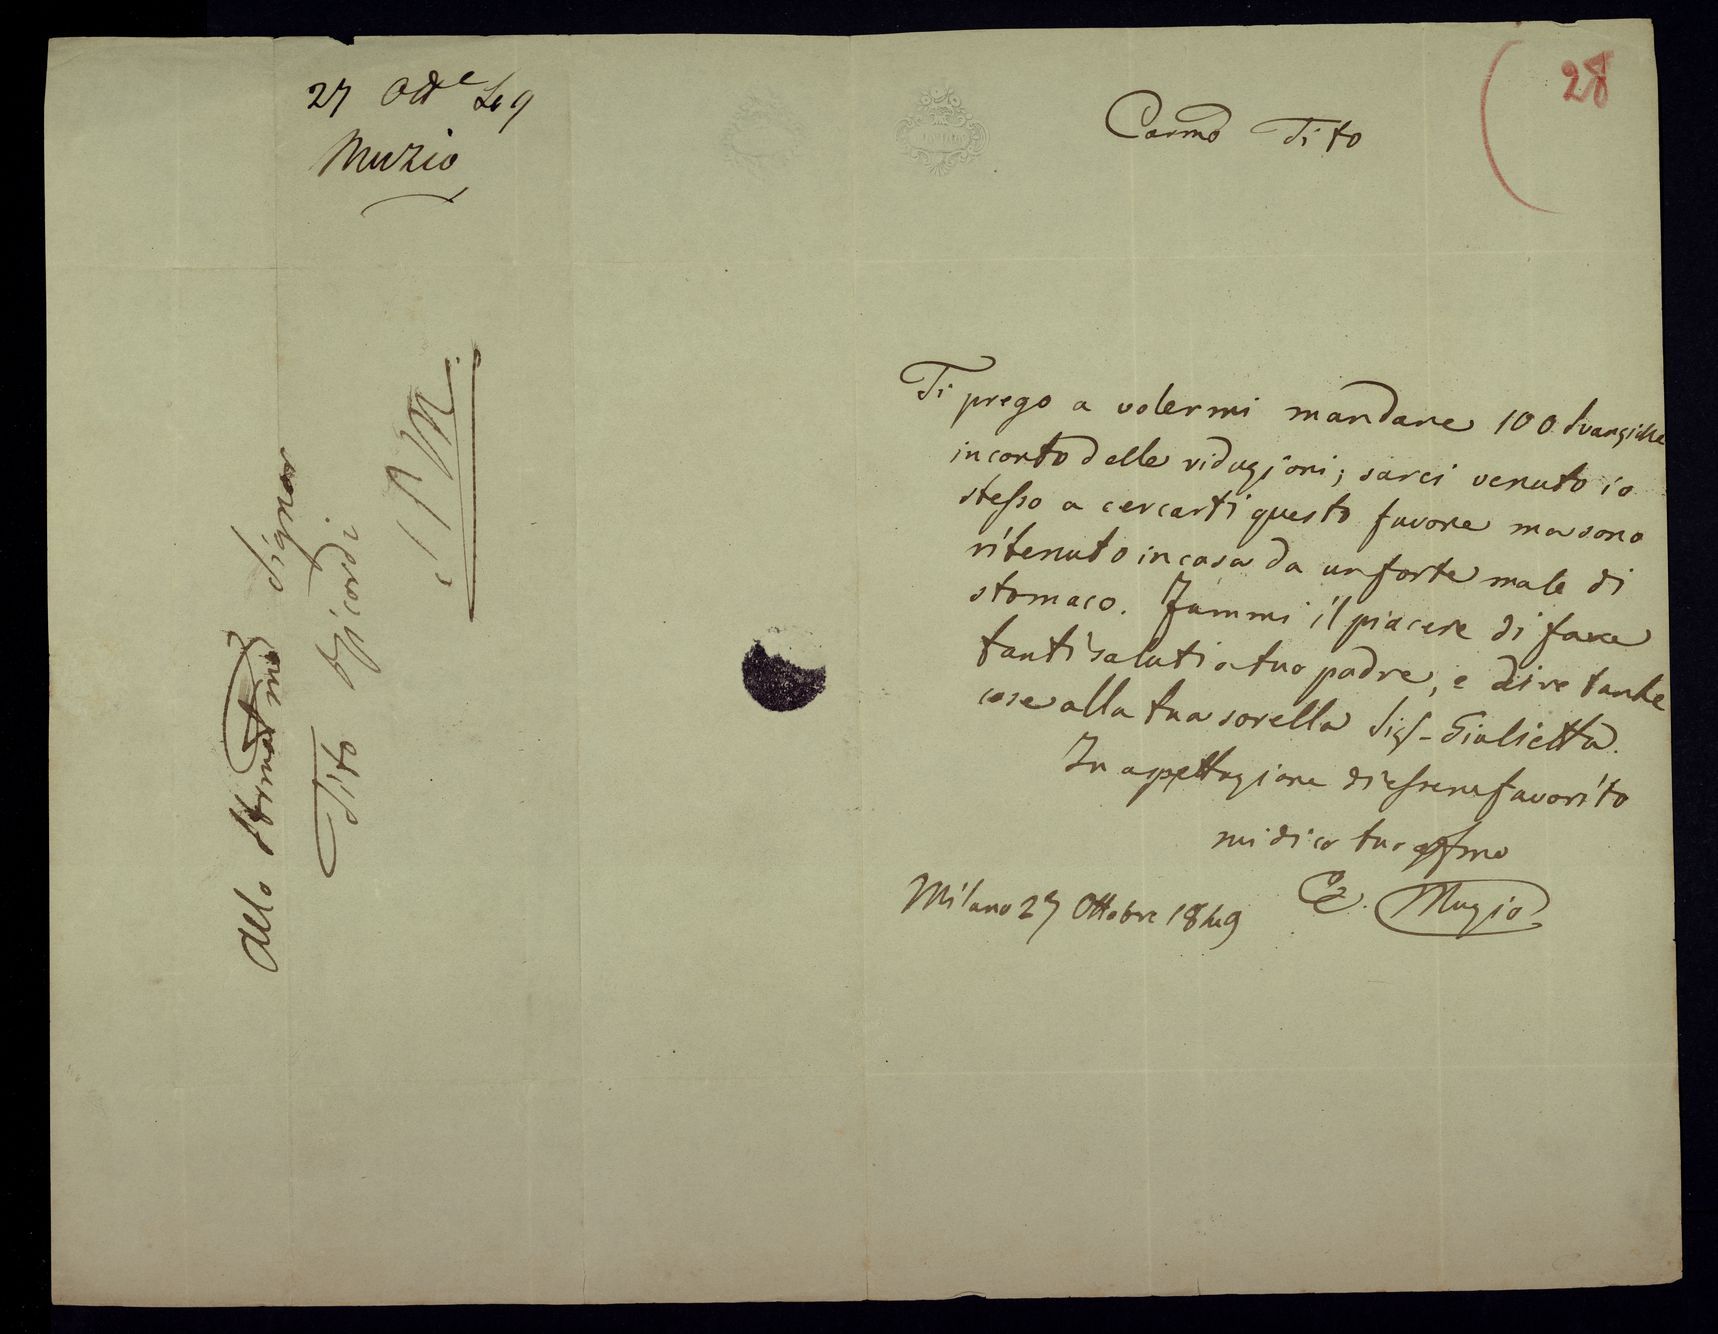 27 Ott.e 49
Muzio
Allo Stimatmo Signor
Tito Ricordi
S.P.M.
28
Carmo Tito
Ti prego a volermi mandare 100 Svanziche
in conto delle riduzioni; sarei venuto io
stesso a cercarti questo favore ma sono
ritenuto in casa da un forte male di
stomaco. Fammi il piacere di fare
tanti saluti a tuo padre, e dire tante
cose alla tua sorella Sigª Giulietta.
In aspettazione di essere favorito
mi dico tuo affmo
E. Muzio
Milano 27 Ottobre 1849